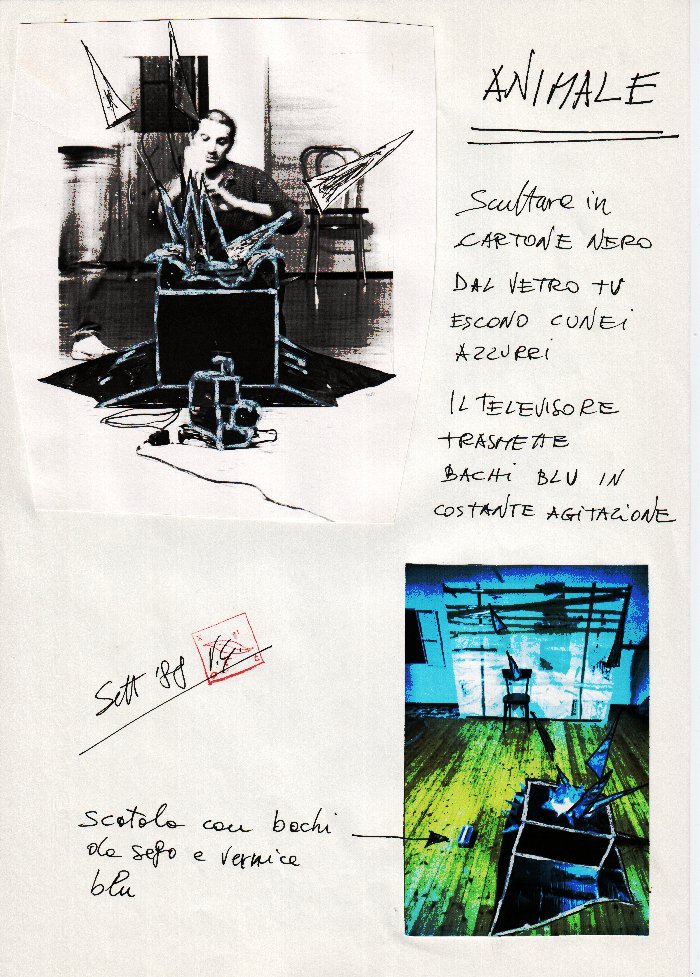 ANIMALE
Scultare in
CARTONE NERO
DAL VETRO TV
ESCONO CUNEI
AZZURRI
IL TELEVISORE
TRASMETTE
BACHI BLU IN
COSTANTE AGITAZIONE
Sett '88 V.G.
Scatola con bachi
da sego e vernice
blu